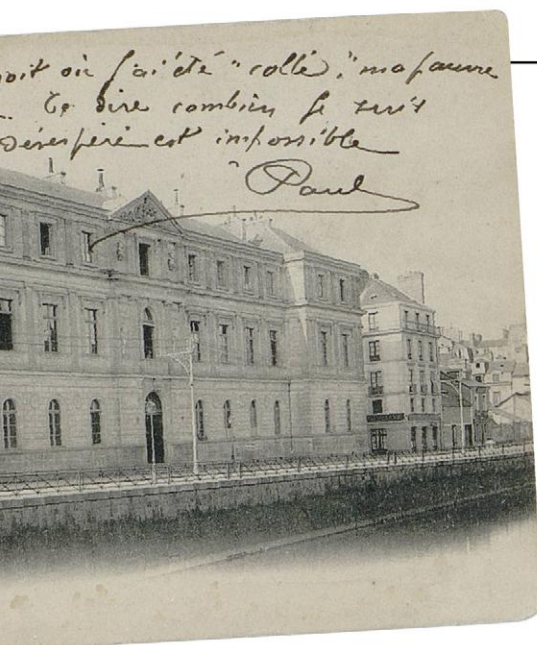 où j'ai été "collé", ma pauvre
... Te dire combien je suis
désespéré est impossible
Paul